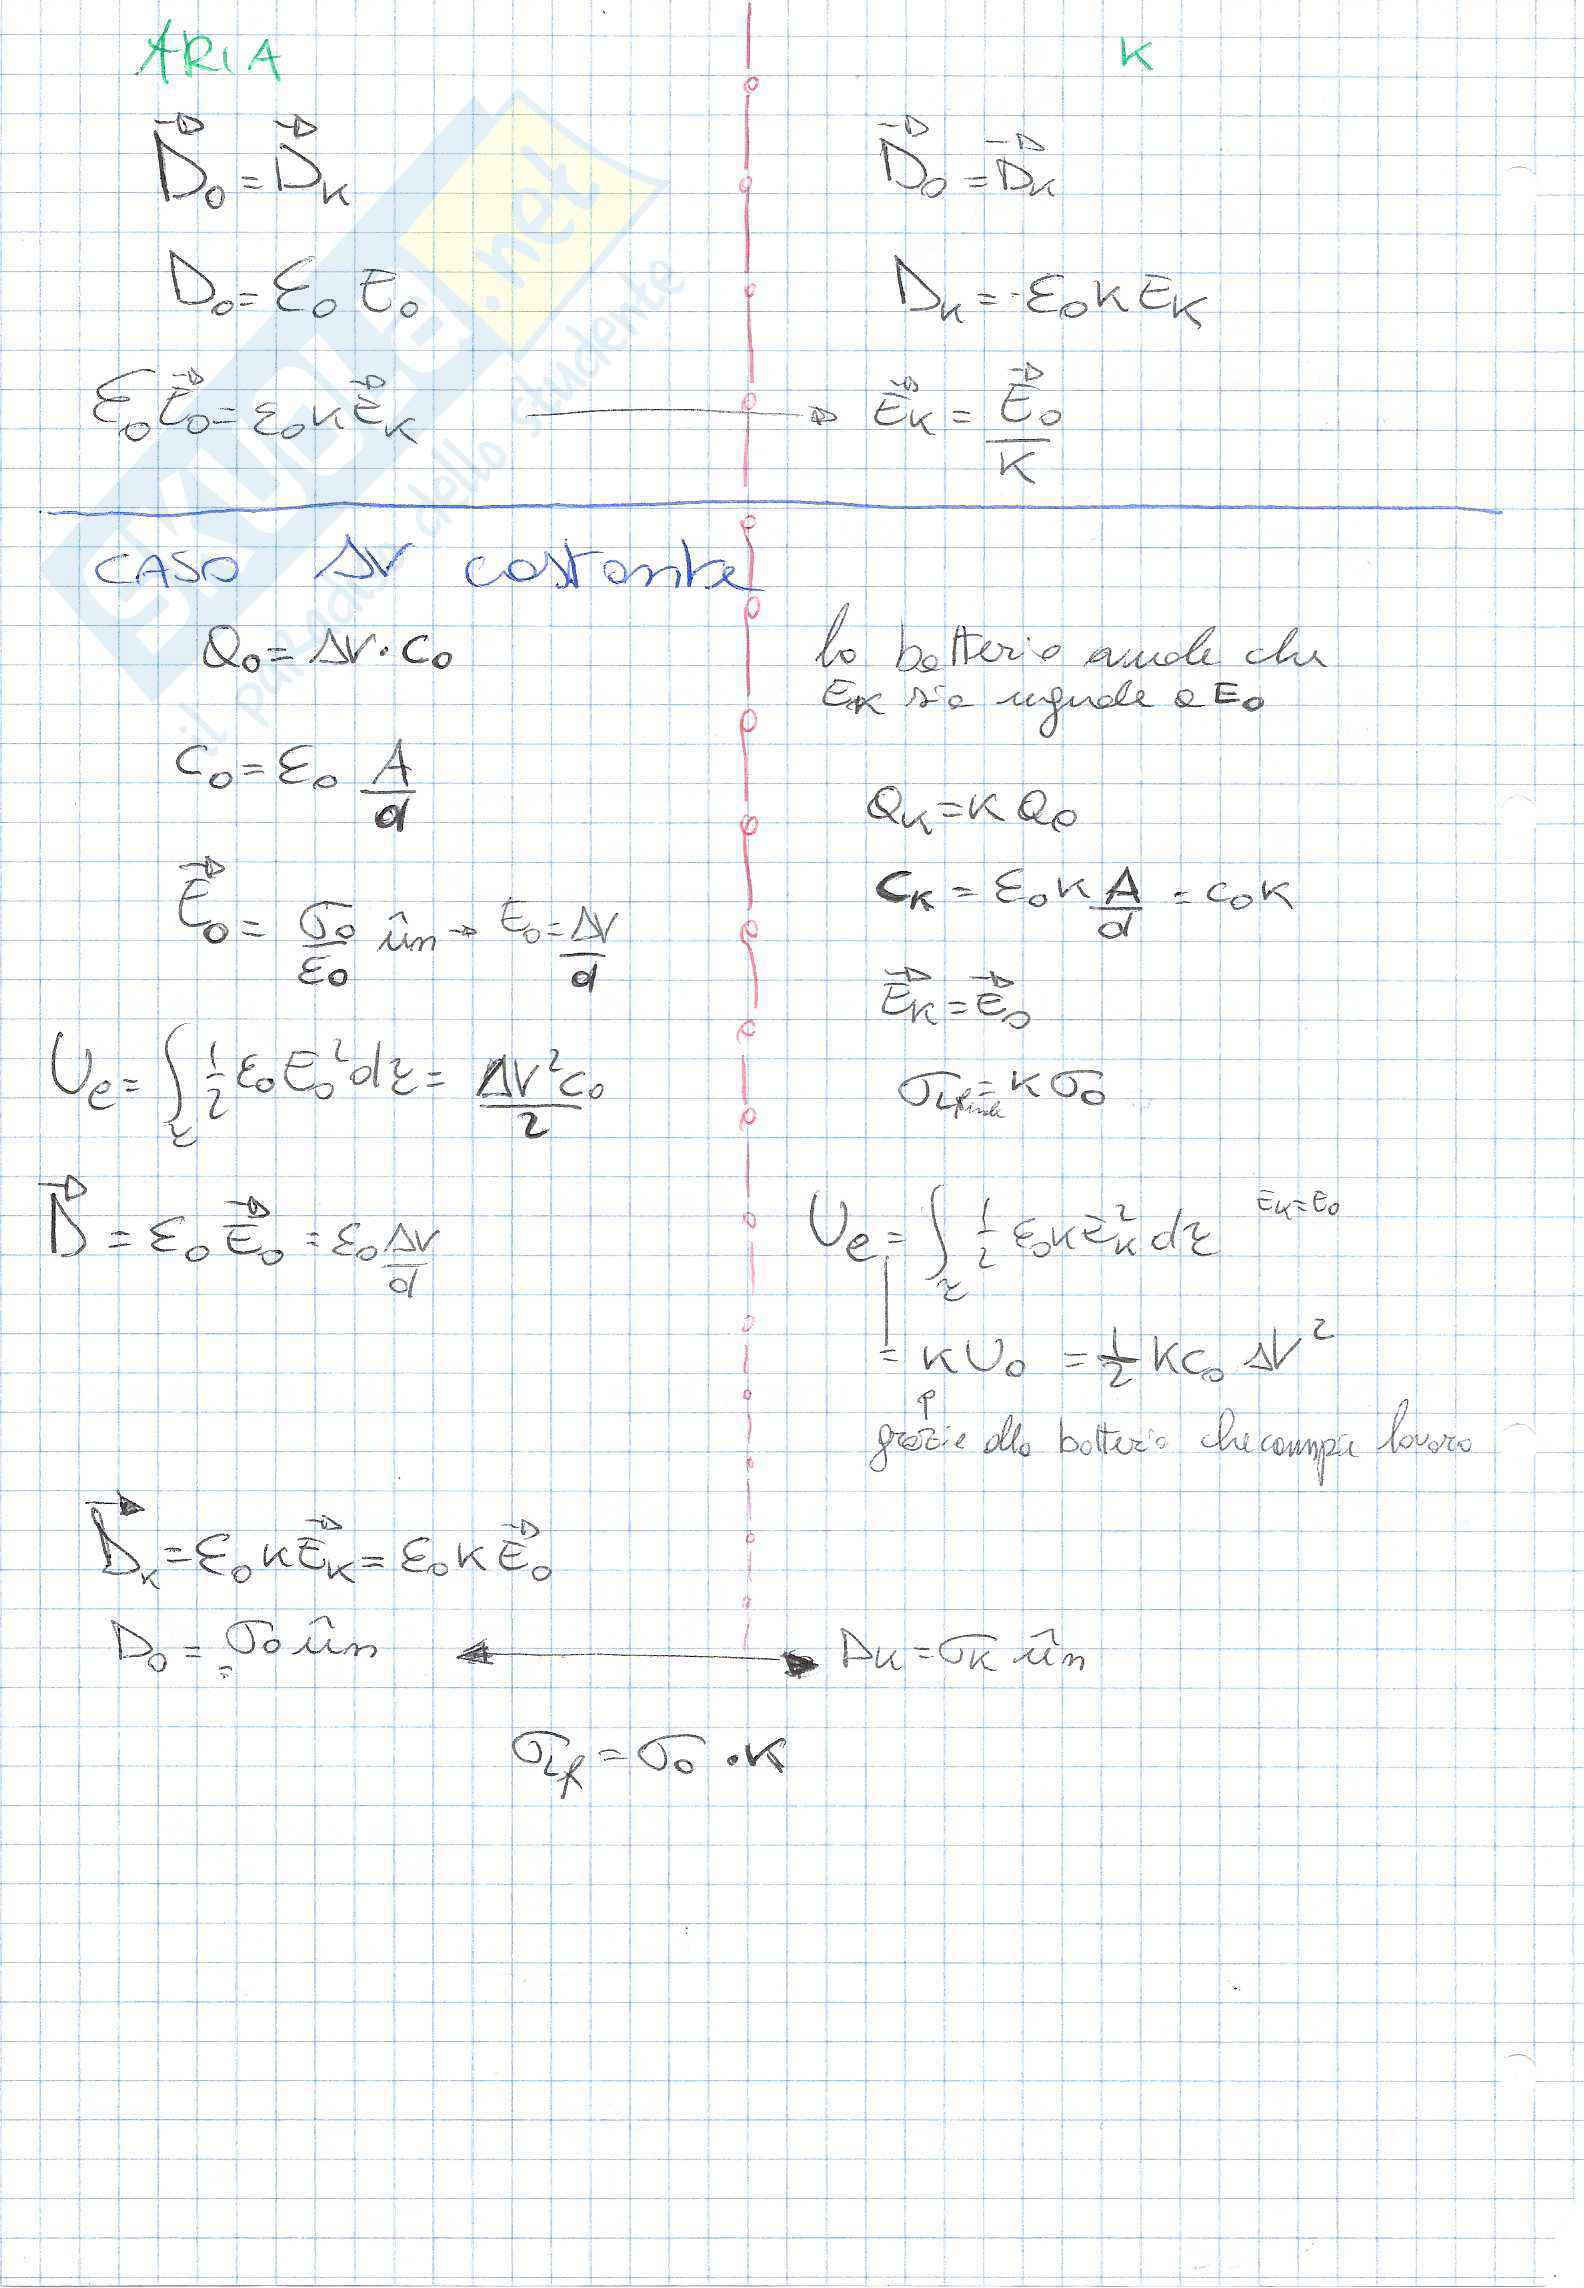 ARIA
K
D⃗₀ = D⃗ₖ
D⃗₀ = D⃗ₖ
D₀ = ε₀ E₀
Dₖ = ε₀ K Eₖ
ε₀ E⃗₀ = ε₀ K E⃗ₖ → E⃗ₖ = E⃗₀/K
CASO ΔV costante
Q₀ = ΔV · C₀
C₀ = ε₀ A/d
E⃗₀ = σ₀/ε₀ ûn → E₀ = ΔV/d
Ue = ∫τ 1/2 ε₀ E₀² dτ = ΔV² C₀/2
D⃗ = ε₀ E⃗₀ = ε₀ ΔV/d
la batteria vuole che
Eₖ sia uguale a E₀
Qₖ = K Q₀
Cₖ = ε₀ K A/d = C₀ K
E⃗ₖ = E⃗₀
σL finale = K σ₀
Ue = ∫τ 1/2 ε₀ K Eₖ² dτ Eₖ = E₀
= K U₀ = 1/2 K C₀ ΔV²
grazie alla batteria che compie lavoro
D⃗ₖ = ε₀ K E⃗ₖ = ε₀ K E⃗₀
D₀ = σ₀ ûn ↔ Dₖ = σₖ ûn
σLf = σ₀ · K
SKUOLA.net
il paradiso dello studente